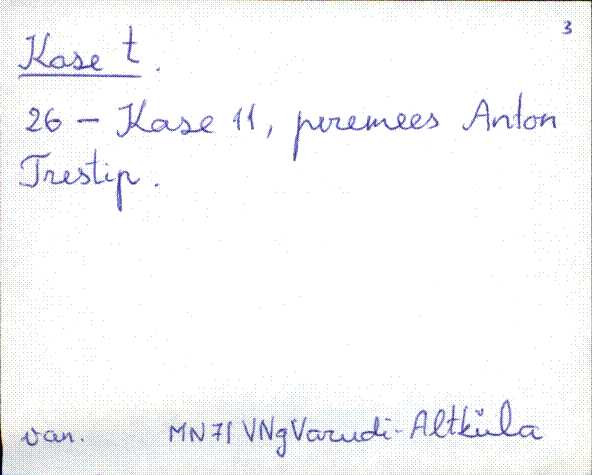 3
Kase t.
26 - Kase 11, peremees Anton
Trestip.
van. MN71 VNg Varudi-Altküla